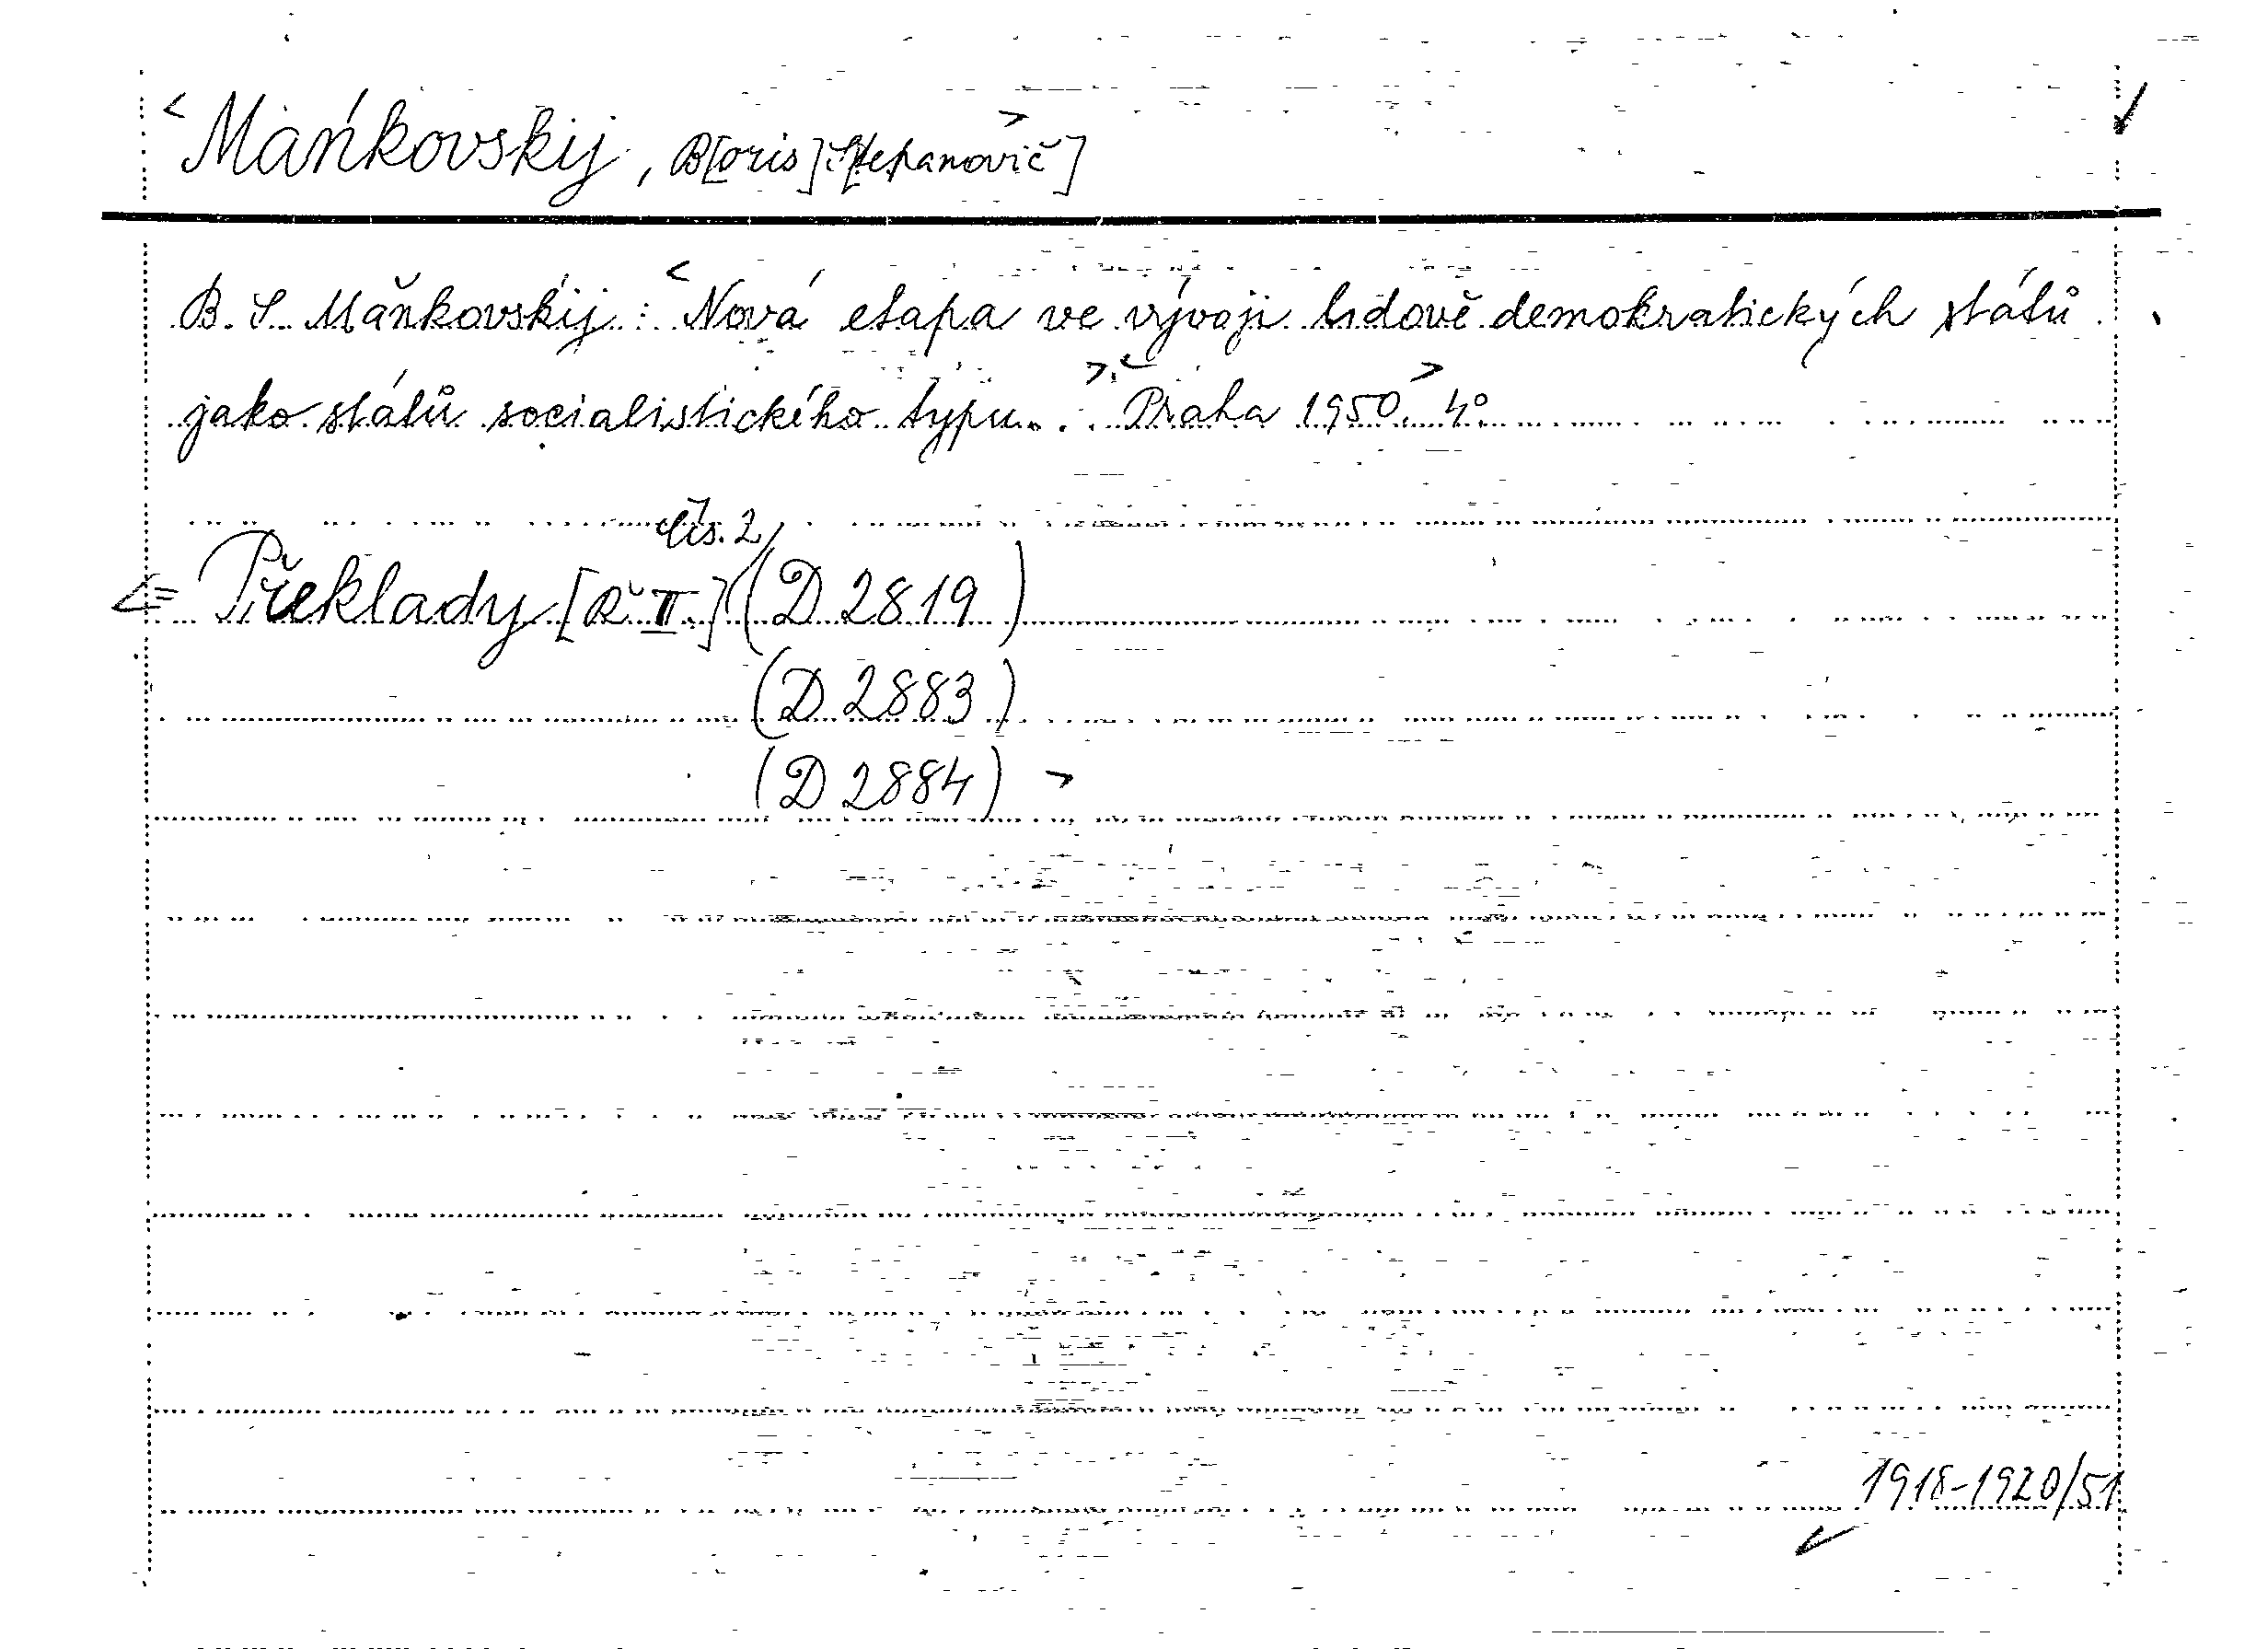 <Mańkovskij, B[oris] S[tepanovič]>
B. S. Maňkovskij: <Nová etapa ve vývoji lidově demokratických států
jako států socialistického typu.>. <Praha 1950.> 4°
čís. 2
<= Překlady [Ř. II.] (D 2819)
(D 2883)
(D 2884) >
1918-1920/51